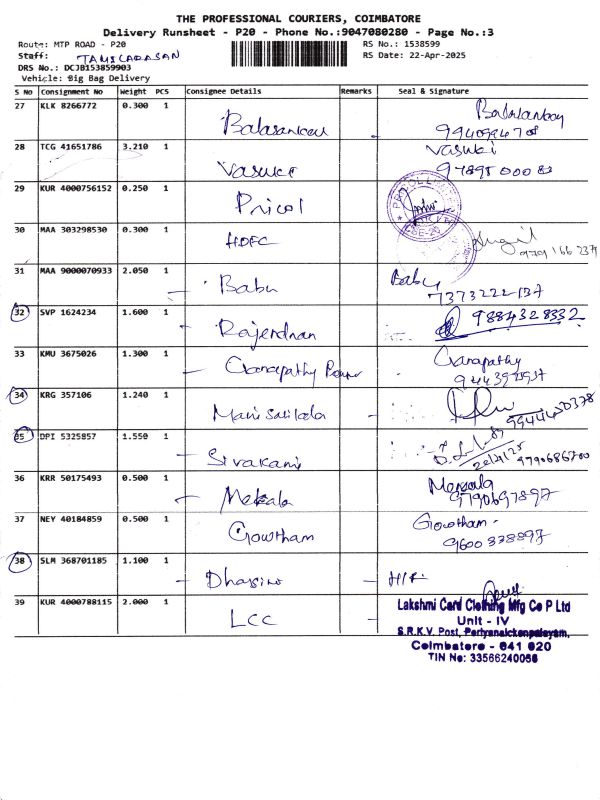 THE PROFESSIONAL COURIERS, COIMBATORE
Delivery Runsheet - P20 - Phone No.:9047080280 - Page No.:3
Route: MTP ROAD - P20 RS No.: 1538599
Staff: TAMILARASAN RS Date: 22-Apr-2025
DRS No.: DCJB153859903
Vehicle: Big Bag Delivery
S No Consignment No Weight PCS Consignee Details Remarks Seal & Signature
27 KLK 8266772 0.300 1 Balasankar
28 TCG 41651786 3.210 1 Vasuki Vasuki
29 KUR 4000756152 0.250 1 Pricol
30 MAA 303298530 0.300 1 HDFC
31 MAA 9000070933 2.050 1 Babu Babu
7373222137
32 SVP 1624234 1.600 1 Rajendran 9884328332
33 KMU 3675026 1.300 1 Ganapathy Ganapathy
34 KRG 357106 1.240 1
35 DPI 5325857 1.550 1 Sivakami 9790686700
36 KRR 50175493 0.500 1 Mekala Mekala
9790697897
37 NEY 40184859 0.500 1 Gowtham Gowtham
9600338897
38 SLM 368701185 1.100 1
39 KUR 4000788115 2.000 1 LCC
Lakshmi Card Clothing Mfg Co P Ltd
Unit - IV
S.R.K.V. Post, Periyanaickenpalayam,
Coimbatore - 641 020
TIN No: 33566240056